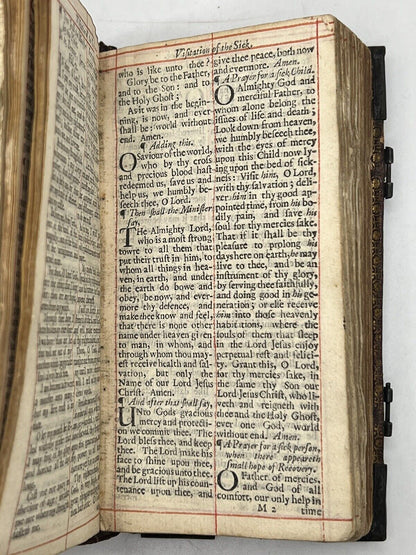 Visitation of the Sick.
who is like unto thee?
Glory be to the Father,
and to the Son: and to
the Holy Ghost;
As it was in the begin-
ning, is now, and ever
shall be: world without
end. Amen.
¶ Adding this.
O Saviour of the world,
who by thy cross
and precious blood hast
redeemed us, save us and
help us, we humbly be-
seech thee, O Lord.
¶ Then shall the Minister
say,
THe Almighty Lord,
who is a most strong
towre to all them that
put their trust in him, to
whom all things in hea-
ven, in earth, and under
the earth do bowe and
obey, be now, and ever-
more thy defence, and
make thee know and feel,
that there is none other
name under heaven given
to man, in whom, and
through whom thou may-
est receive health and sal-
vation, but only the
Name of our Lord Jesus
Christ. Amen.
¶ And after that shall say,
UNto Gods gracious
mercy and protecti-
on we commit thee. The
Lord bless thee, and keep
thee. The Lord make his
face to shine upon thee,
and be gracious unto thee.
The Lord lift up his coun-
tenance upon thee, and
give thee peace, both now
and evermore. Amen.
¶ A Prayer for a sick Child.
O Almighty God and
merciful Father, to
whom alone belong the
issues of life and death;
Look down from heaven,
we humbly beseech thee,
with the eyes of mercy
upon this Child now ly-
ing upon the bed of sick-
ness: Visit him, O Lord,
with thy salvation; deli-
ver him in thy good ap-
pointed time, from his bo-
dily pain, and save his
soul for thy mercies sake.
That if it shall be thy
pleasure to prolong his
days here on earth, he may
live to thee, and be an
instrument of thy glory,
by serving thee faithfully,
and doing good in his ge-
neration; or else receive
him into those heavenly
habitations, where the
souls of them that sleep
in the Lord Jesus enjoy
perpetual rest and felici-
ty. Grant this, O Lord,
for thy mercies sake, in
the same thy Son our
Lord Jesus Christ, who li-
veth and reigneth with
thee and the Holy Ghost,
ever one God, world
without end. Amen.
¶ A Prayer for a sick person,
when there appeareth
small hope of Recovery.
O Father of mercies,
and God of all
comfort, our only help in
M 2 time